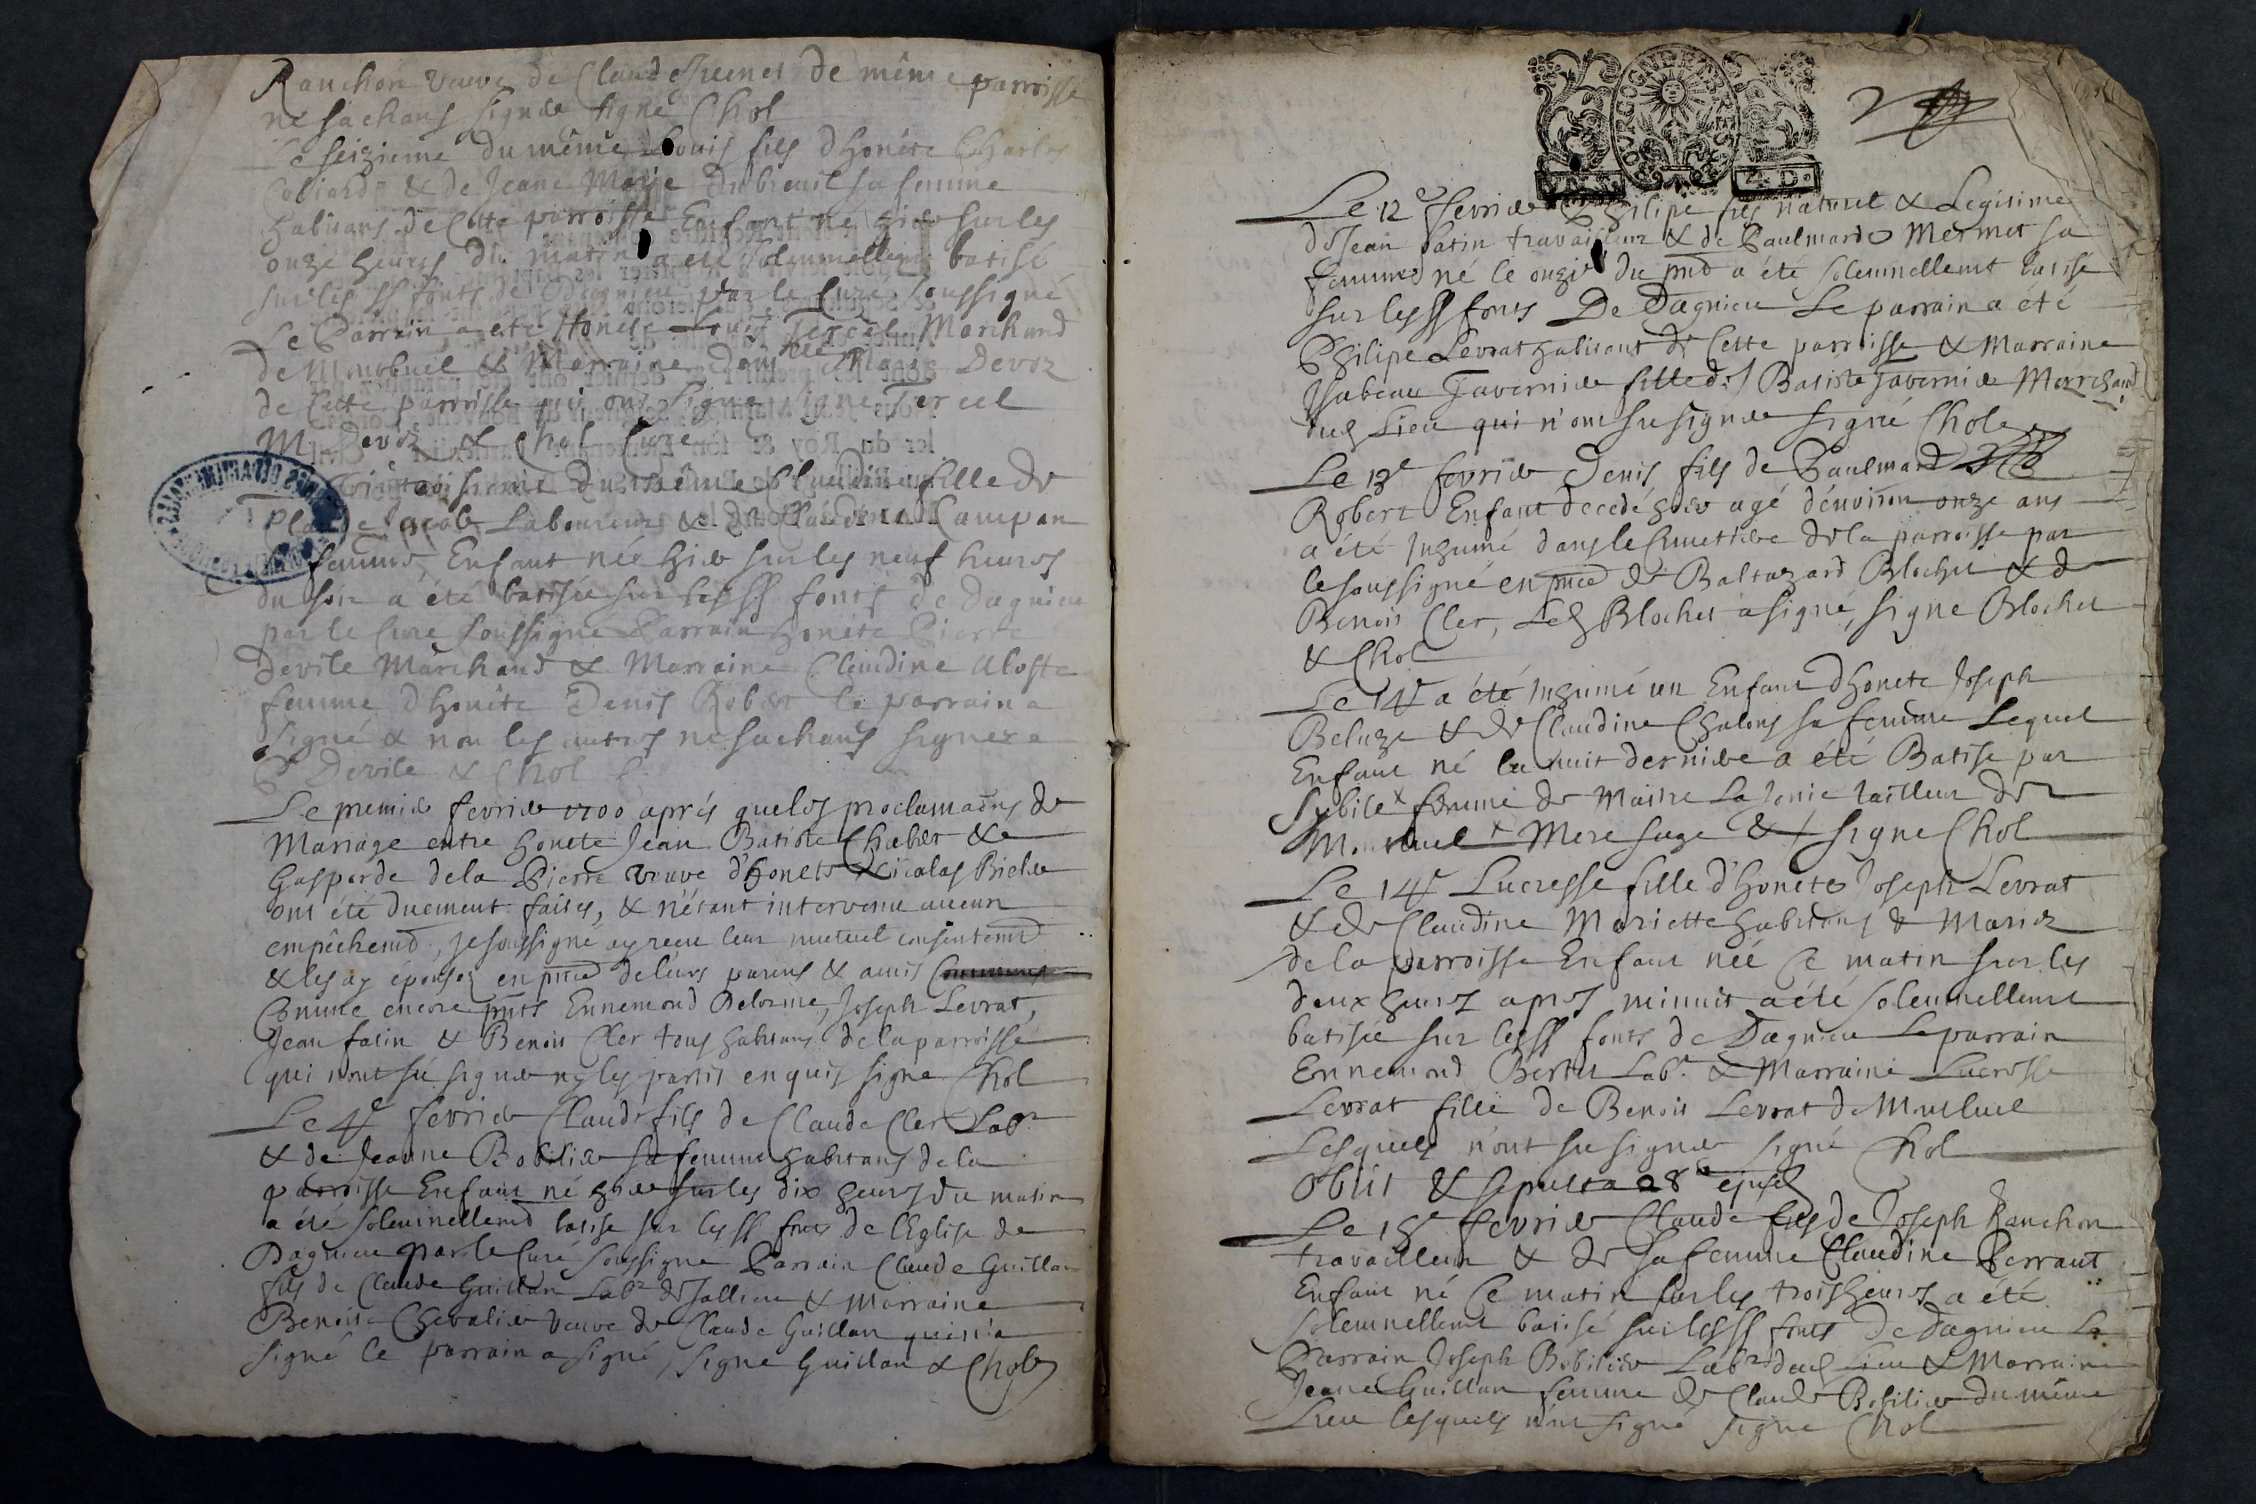 Ranchon veuve de Claude de même parroisse
ne sachans signer signé Chol
Le seizieme du même Louis fils d'honête Charles
& de Jeane Marie Dubreuil sa femme
habitans de Cette parroisse Enfant né hier sur les
onze heures du matin a eté solemnellemt batisé
sur les SS fonts de Dagnieu par le Curé soussigné
Le Parrain a eté Honête Louis Tercel Marchand
de Monluel & Marraine Marie Devoz
de Cette parroisse qui ont signé signe Tercel
M Devoz & Chol Curé
Le du même Claudine fille de
Jacob Laboureur & de Claudine Campan
femme, Enfant née hier sur les neuf heures
du soir a été batisée sur les SS fonts de Dagnieu
par le Cure soussigné Parrain honête Pierre
Devile Marchand & Marraine Claudine Aloste
femme d'honête Denis Robert le parrain a
signé & non les autres ne sachans signer
P Devile & Chol
Le premier fevrier 1700 aprés que les proclamaōns de
Mariage entre honete Jean Batiste Chaber &
Gasparde dela Pierre veuve d'honete Nicolas
ont été duement faites, & n'étant intervenu aucun
empêchemt, je soussigné ay receu leur mutuel consentemt
& les ay épousez en pnce de leurs parens & amis
Comme encore pnts Ennemond Delorme, Joseph Levrat,
Jean fatin & Benoit Cler tous habitans de la parroisse
qui n'ont sú signer ny les partis enquis signe Chol
Le 4e fevrier Claude fils de Claude Cler Labr
& de Jeanne Bobilier sa femme habitans de la
parroisse Enfant né hier sur les dix heures du matin
a été solemnellemt batisé sur les SS fons de l'Eglise de
Dagnieu par le Curé soussigne Parrain Claude Guillan
fils de Claude Guillan Labr de & Marraine
Benoite Chevalier veuve de Claude Guillan qui n'a
signé le parrain a signé, signe Guillan & Chol
BOURGOGNE ET BRESSE
4. D.
Le 12e fevrier Philipe fils naturel & Legitime
de Jean fatin travailleur & de Paulmarde Mermet sa
femme né le onzie du pnt a été solemnellemt batisé
sur les SS fonts De Dagnieu Le parrain a été
Philipe Levrat habitant de Cette parroisse & Marraine
Ysabeau Tavernier fille de Batiste Tavernier Marchand
dud Lieu qui n'ont su signer signé Chol
Le 13e fevrier Denis fils de Paulmard
Robert Enfant decedé hier agé d'environ onze ans
a été Inhumé dans le Cimettiere de la parroisse par
le soussigné en pnce de Baltazard Blochet & de
Benoit Cler, Led Blochet a signé, signe Blochet
& Chol
Le 14e a été Inhumé un Enfant d'honete Joseph
Beluze & de Claudine Chalons sa femme Lequel
Enfant né la nuit derniere a été Batisé par
Sybile femme de Maitre La tailleur de
Monluel Mere sage & signe Chol
Le 14e Lucresse fille d'honete Joseph Levrat
& de Claudine Mariette habitans & Mariez
de la parroisse Enfant née Ce matin sur les
deux heures apres minuit a été solemnellemt
batisée sur les SS fonts de Dagnieu Le parrain
Ennemond Bertet Labr. & Marraine Lucresse
Levrat fille de Benoit Levrat de Monluel
Lesquels n'ont su signer signé Chol
Obiit & sepulta 28a ejusd
Le 18e fevrier Claude fils de Joseph Ranchon
travailleur & de sa femme Claudine Perraut
Enfant né Ce matin sur les trois heures a été
solemnellemt batisé sur les SS fonts de Dagnieu Le
Parrain Joseph Bobilier Labr dud Lieu & Marraine
Jeane Guillan femme de Claude Bobilier du même
Lieu lesquels n'ont signé signe Chol